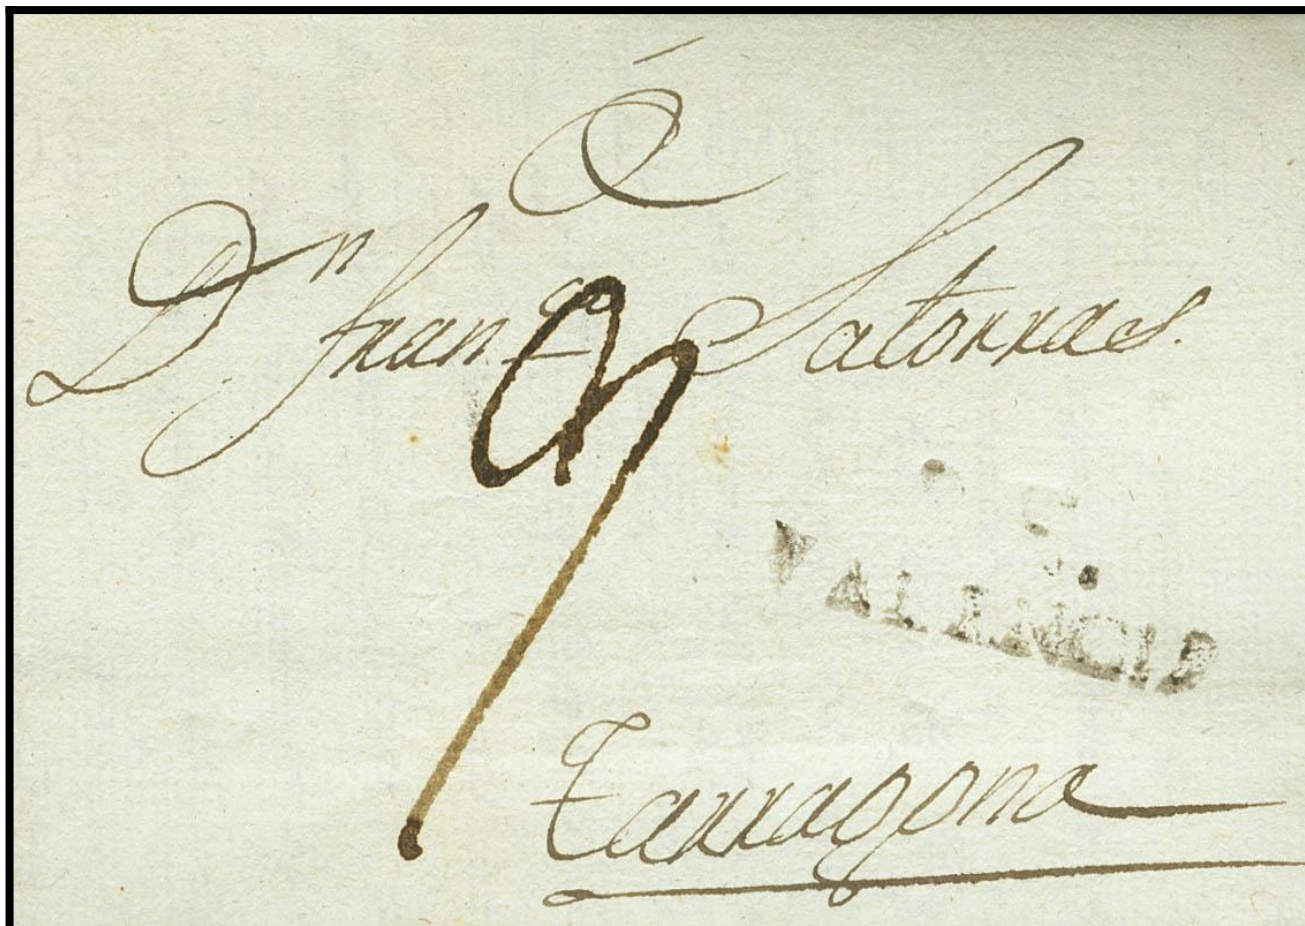 á
Dn Franco Satorras.
VALENCIA
Tarragona